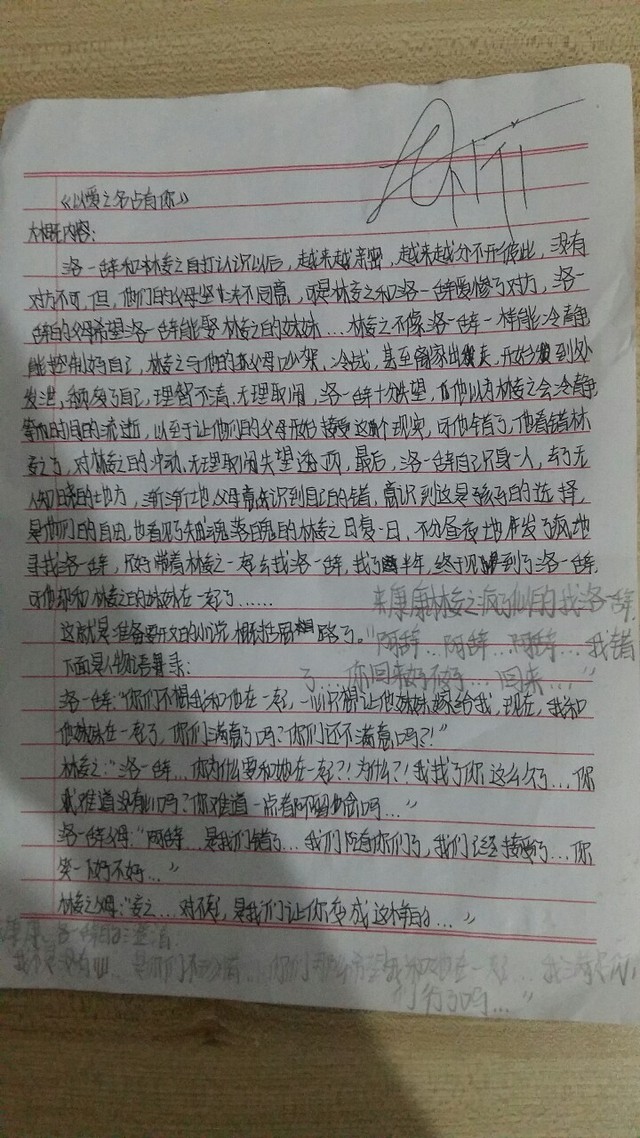 《以爱之名占有你》
大概内容：
洛一辞和林妄之自打认识以后，越来越亲密，越来越分不开彼此，没有
对方不可，但，他们的父母坚决不同意，可是林妄之和洛一辞爱惨了对方，洛一
辞的父母希望洛一辞能娶林妄之的妹妹...林妄之不像洛一辞一样能冷静
能控制好自己，林妄之与他的父母吵架，冷战，甚至离家出走，开始到处
发泄，颓废了自己，理智不清，无理取闹，洛一辞十分失望，他以为林妄之会冷静
等待时间的流逝，以至于让他们的父母开始接受这个现实，可他错了，他看错林
妄之了，对林妄之的冲动，无理取闹失望透顶，最后，洛一辞自己只身一人，去了无
人知晓的地方，渐渐地，父母意识到自己的错，意识到这是孩子的选择，
是他们的自由，也看见了失魂落魄的林妄之日复一日，不分昼夜地发了疯地
寻找洛一辞，只好带着林妄之一起去找洛一辞，找了半年，终于见到了洛一辞，
可他却和林妄之的妹妹在一起了......
来康康林妄之疯了似的找洛一辞
这就是准备要开文的小说，概括思路了。"阿辞...阿辞...阿辞...我错
了...你回来好不好...回来..."
下面是人物语录：
洛一辞："你们不想我和他在一起，一心只想让他妹妹嫁给我，现在，我和
他妹妹在一起了，你们满意了吗？你们还不满意吗？！"
林妄之："洛一辞...你为什么要和她在一起？！为什么？！我找了你这么久...你
难道没有心吗？你难道一点看不出吗..."
洛一辞父母："阿辞...是我们错了...我们不管你们了，我们已经接受了...你
笑一下好不好..."
林妄之父母："妄之...对不起，是我们让你变成这样的..."
康康洛一辞的澄清：
我不是没有心...是你们不分清...你们那么希望我和她在一起...我满足你们
行了吗..."